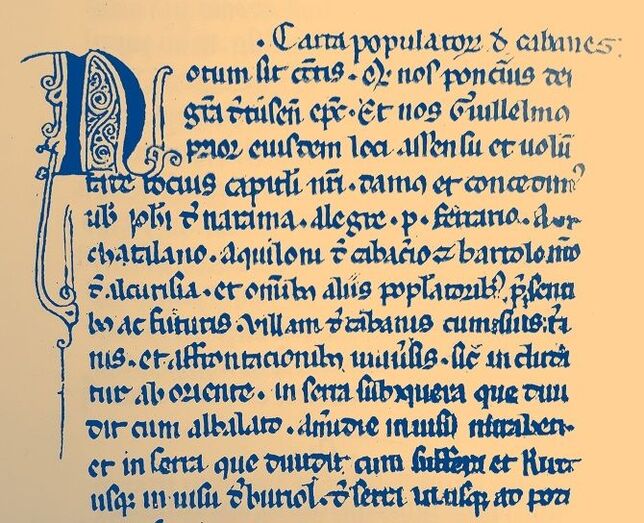 Carta populator d cabanes:
Notum sit cūtis. Qr nos poncius dei
gr̄a d̄tusen̄ ep̄c. Et nos Guillelmo
prior eiusdem loci assensu et uolū
tate tocius capituli nr̄i. damo et concedimo
uob ioh̄i d̄ narama. alegre. p. ferrario. A
chatilano. aquiloni d̄ cabacio z bartolomeo
d̄ alcurisia. et om̄ibo aliis pop̄latoribo p̄senti
bo ac futuris. Villam d̄ cabanis cum suis t̄mi
nis. et affrontacionibo uniuersis. sic̄ includi
tur ab oriente. in serra subxquera que diui
dit cum albalato. Amidie in uiso mirabeti
et in serra que diuidit cum et Riit
usq; in uisu d̄ buriol. d̄ serra ut usq; ad pon